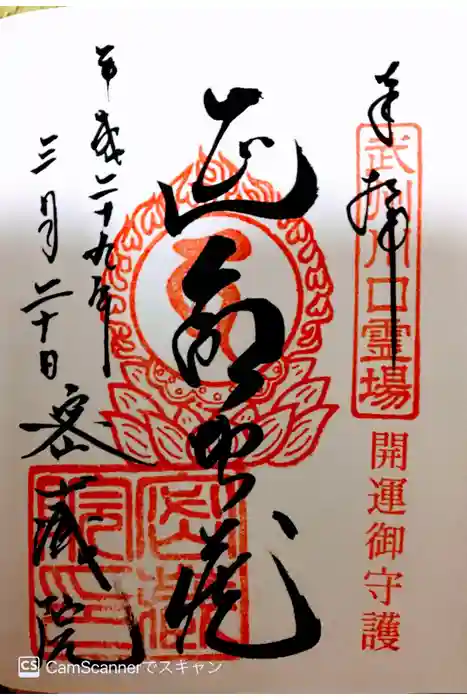 奉拝
武州川口霊場
開運御守護
延命地蔵
平成二十九年
三月二十日
密蔵院
CS CamScannerでスキャン